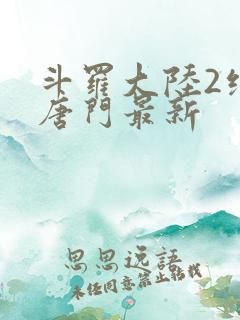 斗羅大陸2絕
唐門最新
思思逸語
未經同意禁止轉載